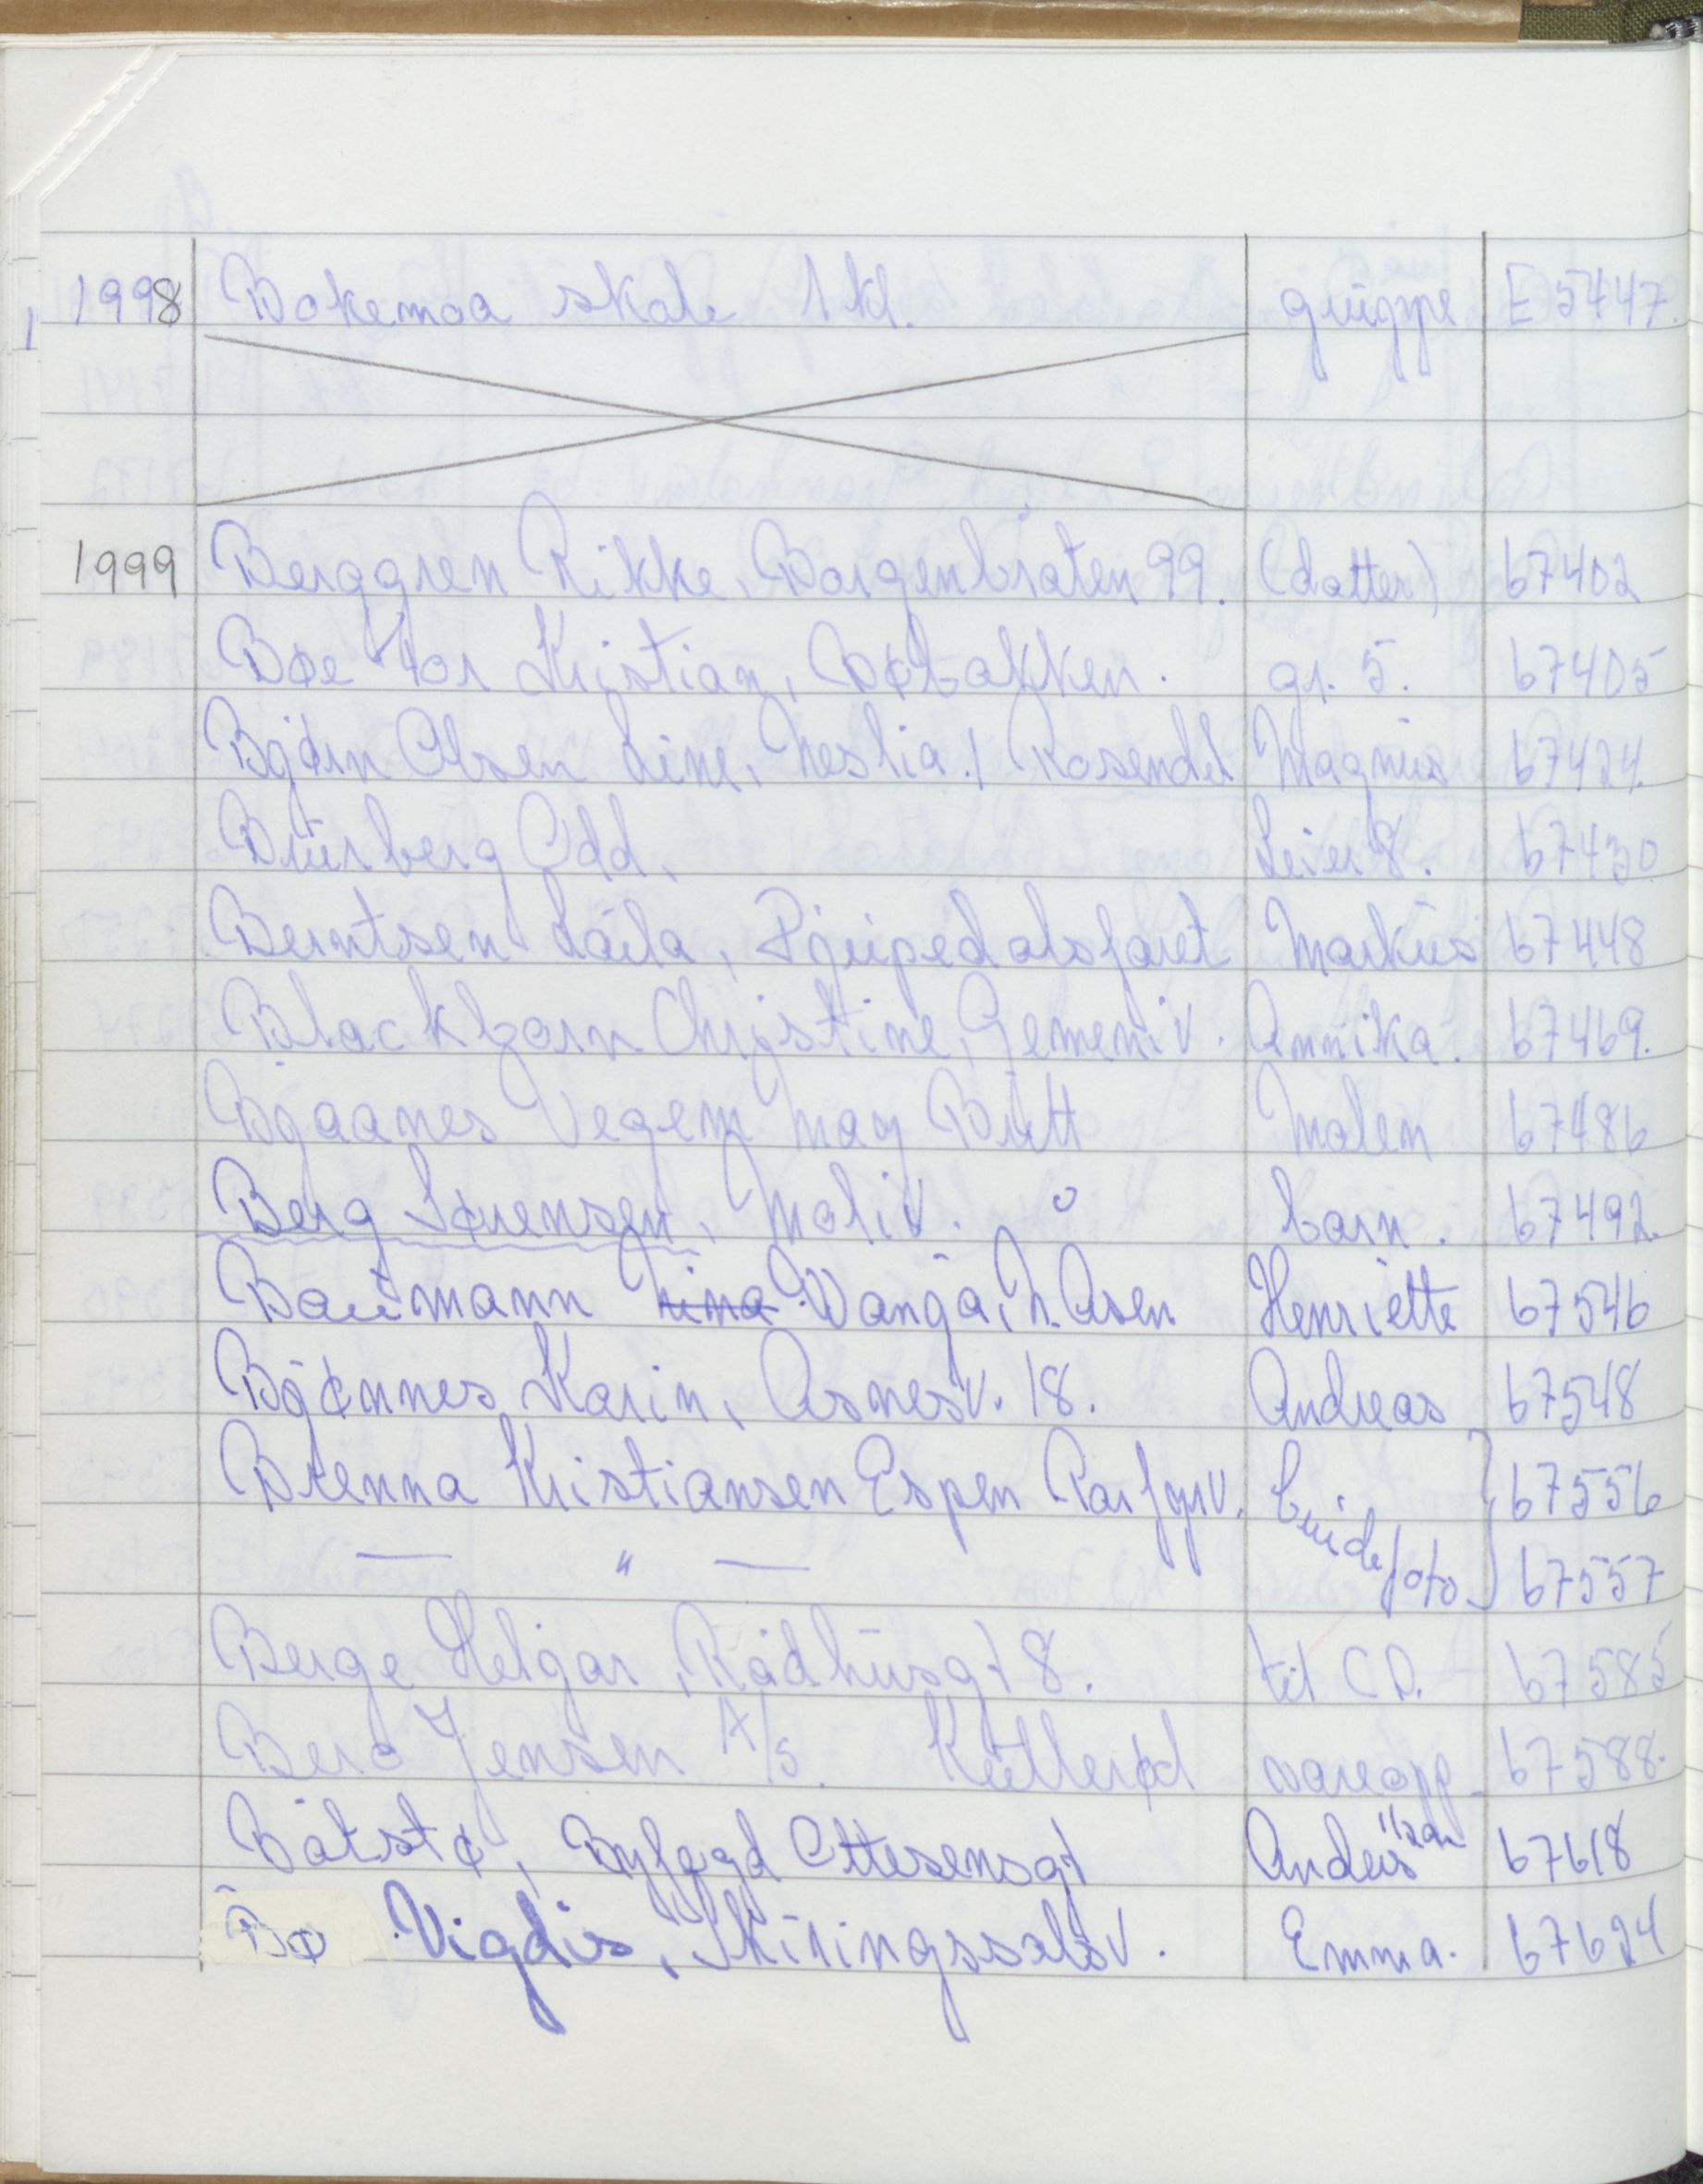 1998 Bokemoa skole 1 kl. gruppe E 5447.
1999 Berggren Rikke, Borgenbråten 99. (datter) 67402
Bøe Tor Kristian, Bøbakken. gr. 5. 67405
Bjørn Olsen Line, Neslia./ Rosendal Magnus 67424.
Buerberg Odd, Leier 8. 67430
Berntsen Laila, Pjuipedalsfaret Markus 67448
Blackborn Christine, Gemeniv. Annika. 67469.
Bjaanes Vegem May Britt Malen 67486
Berg Sørensen, Moliv. barn. 67492.
Baumann Nina Wanja, N. Åsen Henriette 67546
Bjønnes Karin, Åsnesv. 18. Andreas 67548
Brenna Kristiansen Espen Ravfyrv. brude 67556
— " — foto 67557
Berge Helgar, Rådhusgt 8. til CD. 67585
Berg Jensen A/S. Kullerød vareopp. 67588.
Båtstø, Byfogd Ottesensgt Andeus 1/2 år 67618
Bø Vigdis, Skiringssalsv. Emma. 67624